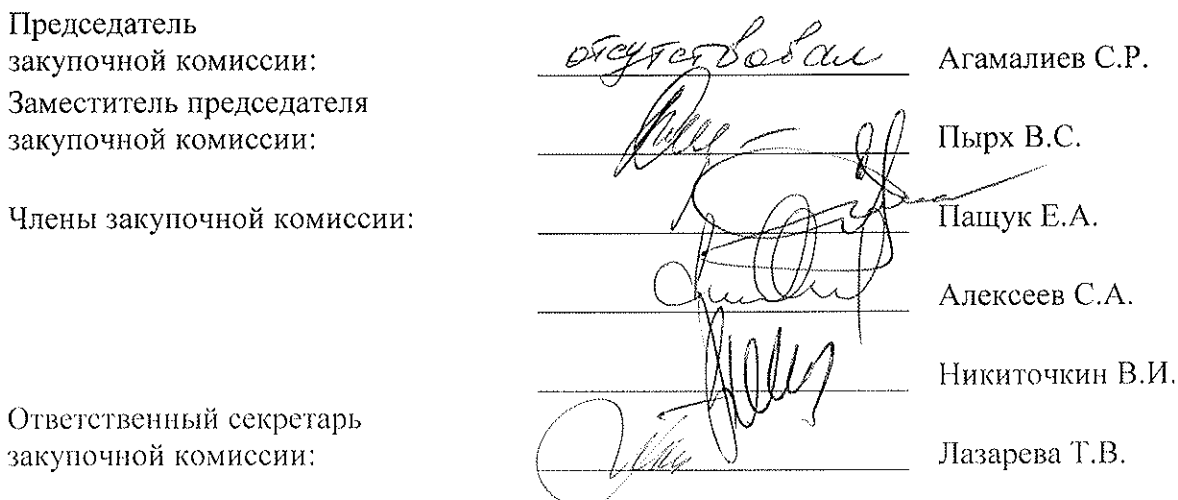 Председатель
закупочной комиссии: отсутствовал Агамалиев С.Р.
Заместитель председателя
закупочной комиссии: Пырх В.С.
Члены закупочной комиссии: Пащук Е.А.
Алексеев С.А.
Никиточкин В.И.
Ответственный секретарь
закупочной комиссии: Лазарева Т.В.